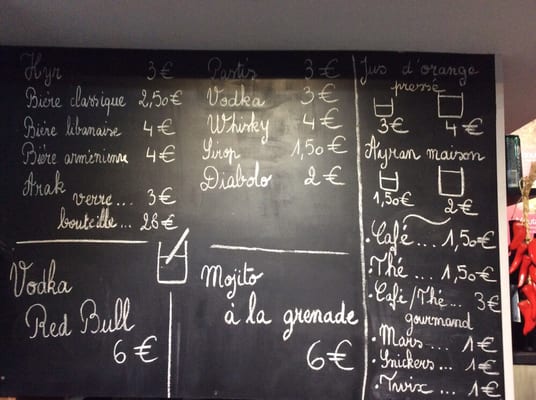 Kyr 3€
Bière classique 2,50€
Bière libanaise 4€
Bière arménienne 4€
Arak
verre... 3€
bouteille... 28€
Pastis 3€
Vodka 3€
Whisky 4€
Sirop 1,50€
Diabolo 2€
Vodka
Red Bull
6€
Mojito
à la grenade
6€
Jus d'orange
pressé
3€ 4€
Ayran maison
1,50€ 2€
• Café... 1,50€
• Thé... 1,50€
• Café/Thé... 3€
gourmand
• Mars.... 1€
• Snickers... 1€
• Twix... 1€